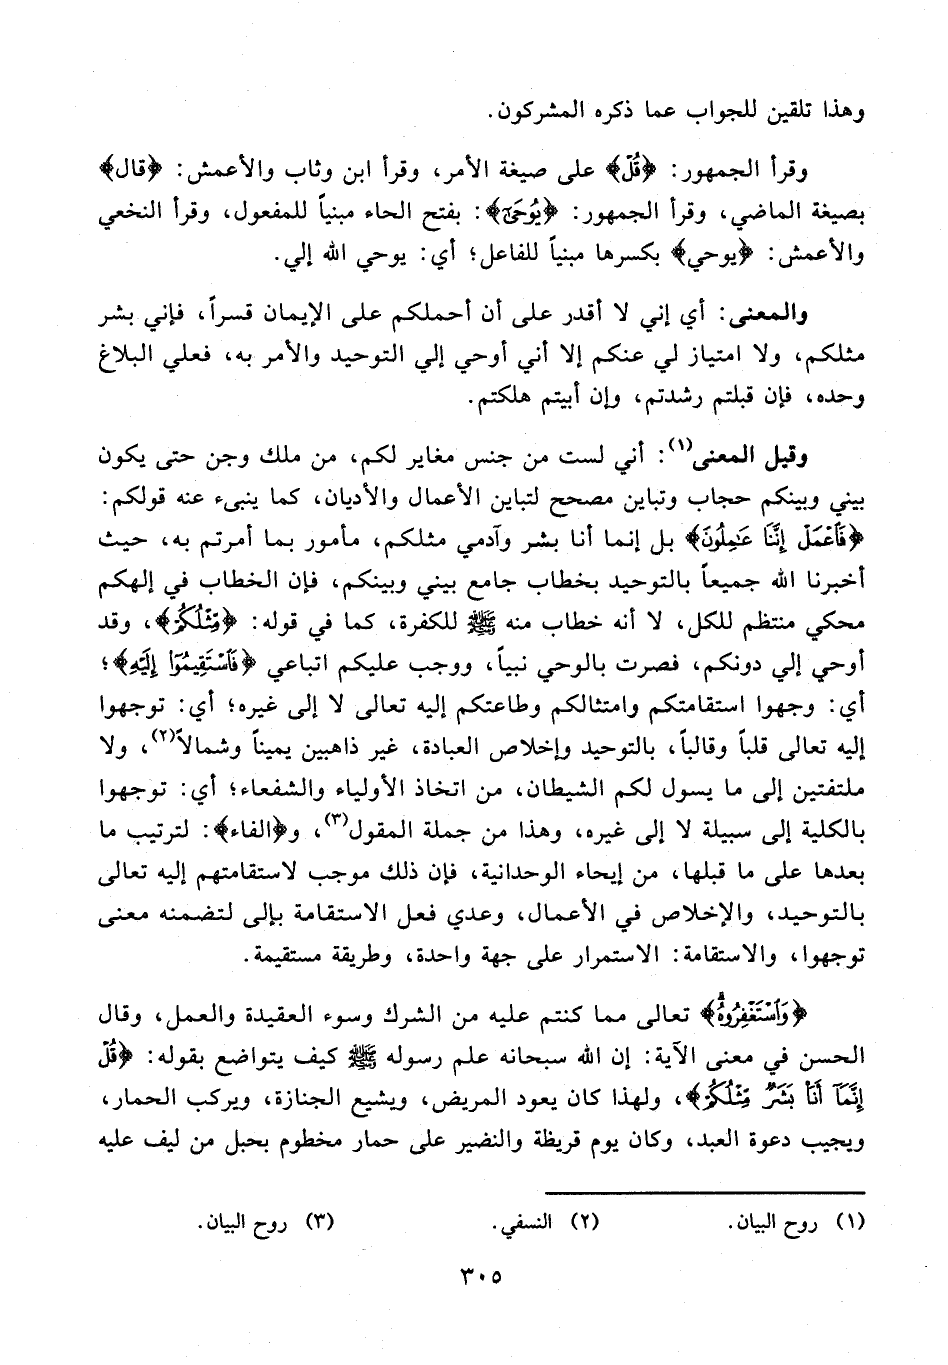 وهذا تلقين للجواب عما ذكره المشركون.
وقرأ الجمهور: ﴿قُلْ﴾ على صيغة الأمر، وقرأ ابن وثاب والأعمش: ﴿قال﴾
بصيغة الماضي، وقرأ الجمهور: ﴿يُوحَىٰ﴾: بفتح الحاء مبنياً للمفعول، وقرأ النخعي
والأعمش: ﴿يوحي﴾ بكسرها مبنياً للفاعل؛ أي: يوحي الله إلي.
والمعنى: أي إني لا أقدر على أن أحملكم على الإيمان قسراً، فإني بشر
مثلكم، ولا امتياز لي عنكم إلا أني أوحي إلي التوحيد والأمر به، فعلي البلاغ
وحده، فإن قبلتم رشدتم، وإن أبيتم هلكتم.
وقيل المعنى(١): أني لست من جنس مغاير لكم، من ملك وجن حتى يكون
بيني وبينكم حجاب وتباين مصحح لتباين الأعمال والأديان، كما ينبىء عنه قولكم:
﴿فَٱعْمَلْ إِنَّنَا عَٰمِلُونَ﴾ بل إنما أنا بشر وآدمي مثلكم، مأمور بما أمرتم به، حيث
أخبرنا الله جميعاً بالتوحيد بخطاب جامع بيني وبينكم، فإن الخطاب في إلهكم
محكي منتظم للكل، لا أنه خطاب منه ﷺ للكفرة، كما في قوله: ﴿مِّثْلُكُمْ﴾، وقد
أوحي إلي دونكم، فصرت بالوحي نبياً، ووجب عليكم اتباعي ﴿فَٱسْتَقِيمُوٓا۟ إِلَيْهِ﴾؛
أي: وجهوا استقامتكم وامتثالكم وطاعتكم إليه تعالى لا إلى غيره؛ أي: توجهوا
إليه تعالى قلباً وقالباً، بالتوحيد وإخلاص العبادة، غير ذاهبين يميناً وشمالاً(٢)، ولا
ملتفتين إلى ما يسول لكم الشيطان، من اتخاذ الأولياء والشفعاء؛ أي: توجهوا
بالكلية إلى سبيلة لا إلى غيره، وهذا من جملة المقول(٣)، و﴿الفاء﴾: لترتيب ما
بعدها على ما قبلها، من إيحاء الوحدانية، فإن ذلك موجب لاستقامتهم إليه تعالى
بالتوحيد، والإخلاص في الأعمال، وعدي فعل الاستقامة بإلى لتضمنه معنى
توجهوا، والاستقامة: الاستمرار على جهة واحدة، وطريقة مستقيمة.
﴿وَٱسْتَغْفِرُوهُ﴾ تعالى مما كنتم عليه من الشرك وسوء العقيدة والعمل، وقال
الحسن في معنى الآية: إن الله سبحانه علم رسوله ﷺ كيف يتواضع بقوله: ﴿قُلْ
إِنَّمَآ أَنَا۠ بَشَرٌ مِّثْلُكُمْ﴾، ولهذا كان يعود المريض، ويشيع الجنازة، ويركب الحمار،
ويجيب دعوة العبد، وكان يوم قريظة والنضير على حمار مخطوم بحبل من ليف عليه
(١) روح البيان. (٢) النسفي. (٣) روح البيان.
٣٠٥